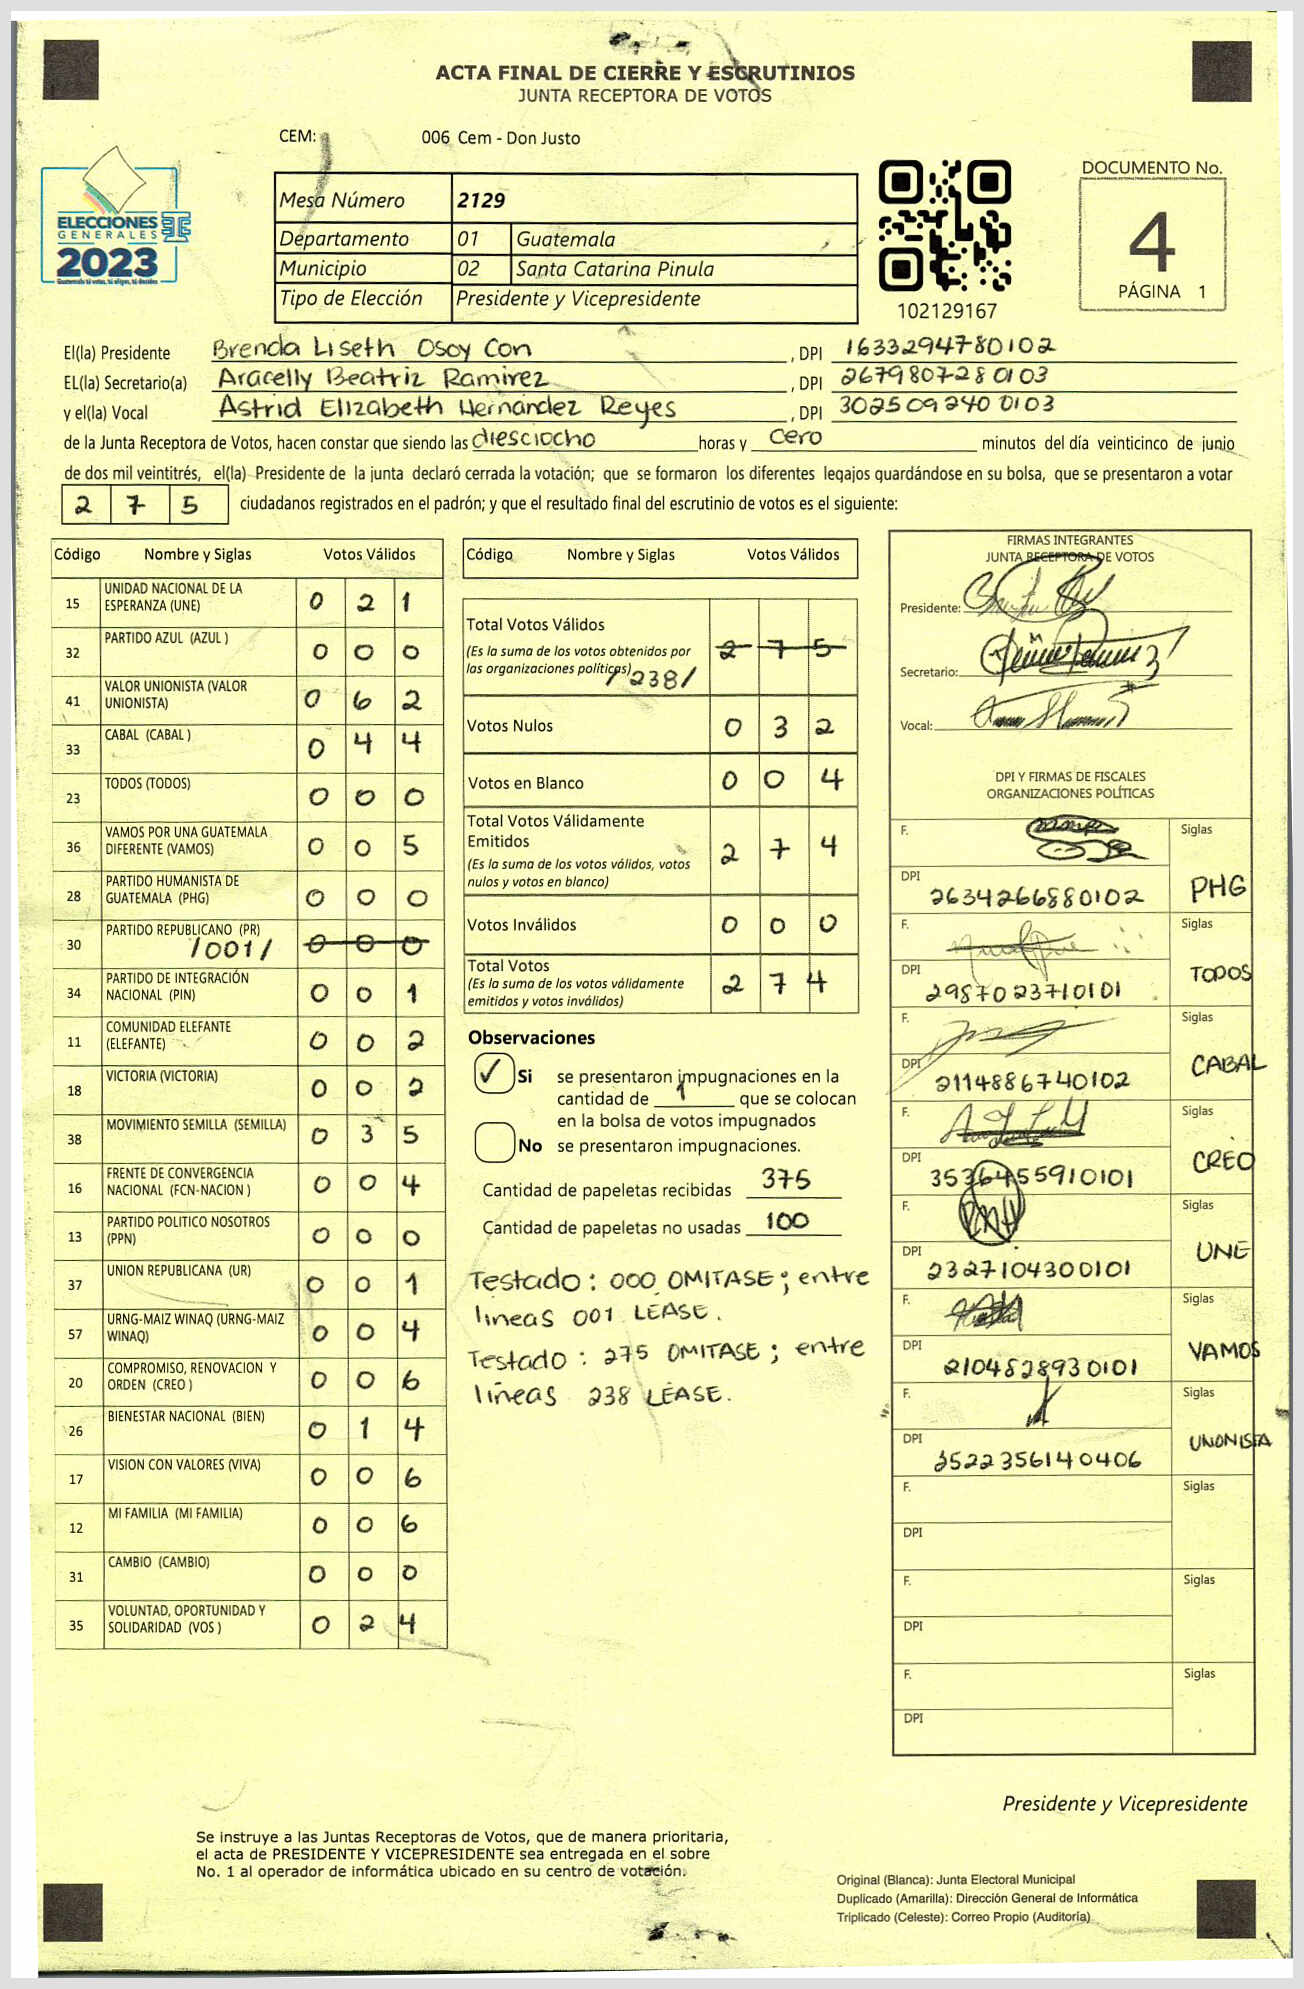 ACTA FINAL DE CIERRE Y ESCRUTINIOS
JUNTA RECEPTORA DE VOTOS
CEM: 006 Cem - Don Justo
ELECCIONES
GENERALES
2023
Guatemala tú votas, tú eliges, tú decides
Mesa Número 2129
Departamento 01 Guatemala
Municipio 02 Santa Catarina Pinula
Tipo de Elección Presidente y Vicepresidente
102129167
DOCUMENTO No.
4
PÁGINA 1
El(la) Presidente Brenda Liseth Osoy Con , DPI 1633294780102
EL(la) Secretario(a) Aracelly Beatriz Ramirez , DPI 2679807280103
y el(la) Vocal Astrid Elizabeth Hernández Reyes , DPI 3025092400103
de la Junta Receptora de Votos, hacen constar que siendo las diesciocho horas y cero minutos del día veinticinco de junio
de dos mil veintitrés, el(la) Presidente de la junta declaró cerrada la votación; que se formaron los diferentes legajos guardándose en su bolsa, que se presentaron a votar
2 7 5 ciudadanos registrados en el padrón; y que el resultado final del escrutinio de votos es el siguiente:
Código Nombre y Siglas Votos Válidos
15 UNIDAD NACIONAL DE LA ESPERANZA (UNE) 0 2 1
32 PARTIDO AZUL (AZUL ) 0 0 0
41 VALOR UNIONISTA (VALOR UNIONISTA) 0 6 2
33 CABAL (CABAL ) 0 4 4
23 TODOS (TODOS) 0 0 0
36 VAMOS POR UNA GUATEMALA DIFERENTE (VAMOS) 0 0 5
28 PARTIDO HUMANISTA DE GUATEMALA (PHG) 0 0 0
30 PARTIDO REPUBLICANO (PR) /001/ 0 0 0
34 PARTIDO DE INTEGRACIÓN NACIONAL (PIN) 0 0 1
11 COMUNIDAD ELEFANTE (ELEFANTE) 0 0 2
18 VICTORIA (VICTORIA) 0 0 2
38 MOVIMIENTO SEMILLA (SEMILLA) 0 3 5
16 FRENTE DE CONVERGENCIA NACIONAL (FCN-NACION ) 0 0 4
13 PARTIDO POLITICO NOSOTROS (PPN) 0 0 0
37 UNION REPUBLICANA (UR) 0 0 1
57 URNG-MAIZ WINAQ (URNG-MAIZ WINAQ) 0 0 4
20 COMPROMISO, RENOVACION Y ORDEN (CREO ) 0 0 6
26 BIENESTAR NACIONAL (BIEN) 0 1 4
17 VISION CON VALORES (VIVA) 0 0 6
12 MI FAMILIA (MI FAMILIA) 0 0 6
31 CAMBIO (CAMBIO) 0 0 0
35 VOLUNTAD, OPORTUNIDAD Y SOLIDARIDAD (VOS ) 0 2 4
Código Nombre y Siglas Votos Válidos
Total Votos Válidos 2 7 5
(Es la suma de los votos obtenidos por
las organizaciones políticas) /238/
Votos Nulos 0 3 2
Votos en Blanco 0 0 4
Total Votos Válidamente
Emitidos 2 7 4
(Es la suma de los votos válidos, votos
nulos y votos en blanco)
Votos Inválidos 0 0 0
Total Votos 2 7 4
(Es la suma de los votos válidamente
emitidos y votos inválidos)
Observaciones
✓ Si se presentaron impugnaciones en la
cantidad de 1 que se colocan
en la bolsa de votos impugnados
No se presentaron impugnaciones.
Cantidad de papeletas recibidas 375
Cantidad de papeletas no usadas 100
Testado : 000 OMITASE ; entre
lineas 001 LEASE.
Testado : 275 OMITASE ; entre
líneas 238 LEASE.
FIRMAS INTEGRANTES
JUNTA RECEPTORA DE VOTOS
Presidente:
Secretario:
Vocal:
DPI Y FIRMAS DE FISCALES
ORGANIZACIONES POLÍTICAS
F. Siglas
DPI 2634266880102 PHG
F. Siglas
DPI 2987023710101 TODOS
F. Siglas
DPI 2114886740102 CABAL
F. Siglas
DPI 3536455910101 CREO
F. Siglas
DPI 2327104300101 UNE
F. Siglas
DPI 2104828930101 VAMOS
F. Siglas
DPI 3522356140406 UNONISTA
F. Siglas
DPI
F. Siglas
DPI
F. Siglas
DPI
Presidente y Vicepresidente
Se instruye a las Juntas Receptoras de Votos, que de manera prioritaria,
el acta de PRESIDENTE Y VICEPRESIDENTE sea entregada en el sobre
No. 1 al operador de informática ubicado en su centro de votación.
Original (Blanca): Junta Electoral Municipal
Duplicado (Amarilla): Dirección General de Informática
Triplicado (Celeste): Correo Propio (Auditoría)